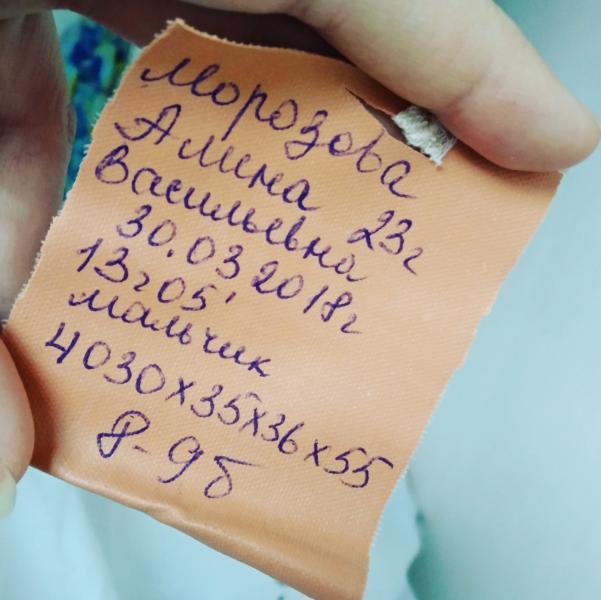 Морозова
Алина 23г
Васильевна
30.03.2018г
13г05'
мальчик
4030х35х36х55
8-9б